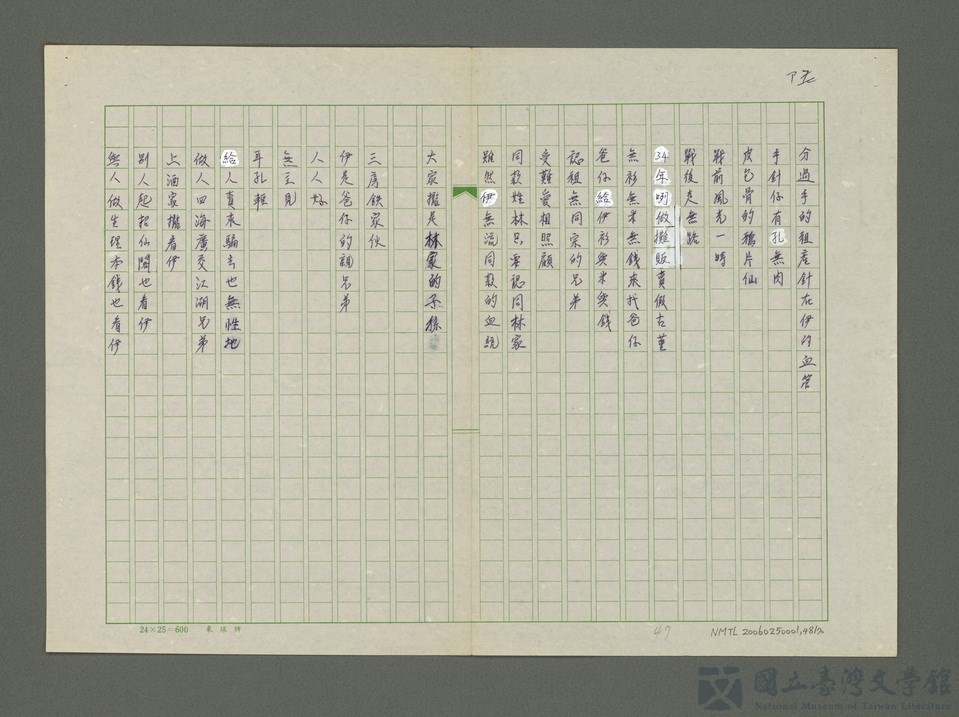 分過手的租產針在伊的血管
手針仔有孔無肉
皮包骨的鴉片仙
戰前風光一時
戰後走無路
34年咧做攤販賣假古董
無衫無米無錢來找爸仔
爸仔給伊衫與米與錢
認祖無同宗的兄弟
受難愛相照顧
同款姓林只要認同林家
雖然伊無流同款的血統
大家攏是林家的子孫
三房鉄家伙
伊是爸仔的親兄弟
人人好
無主見
耳孔輕
給人賣來騙去也無性地
做人四海廣交江湖兄弟
上酒家攏看伊
別人起招仙閣也看伊
無人做生理本錢也看伊
24×25=600
47
NMTL 20060250001,48/70
國立臺灣文學館
National Museum of Taiwan Literature